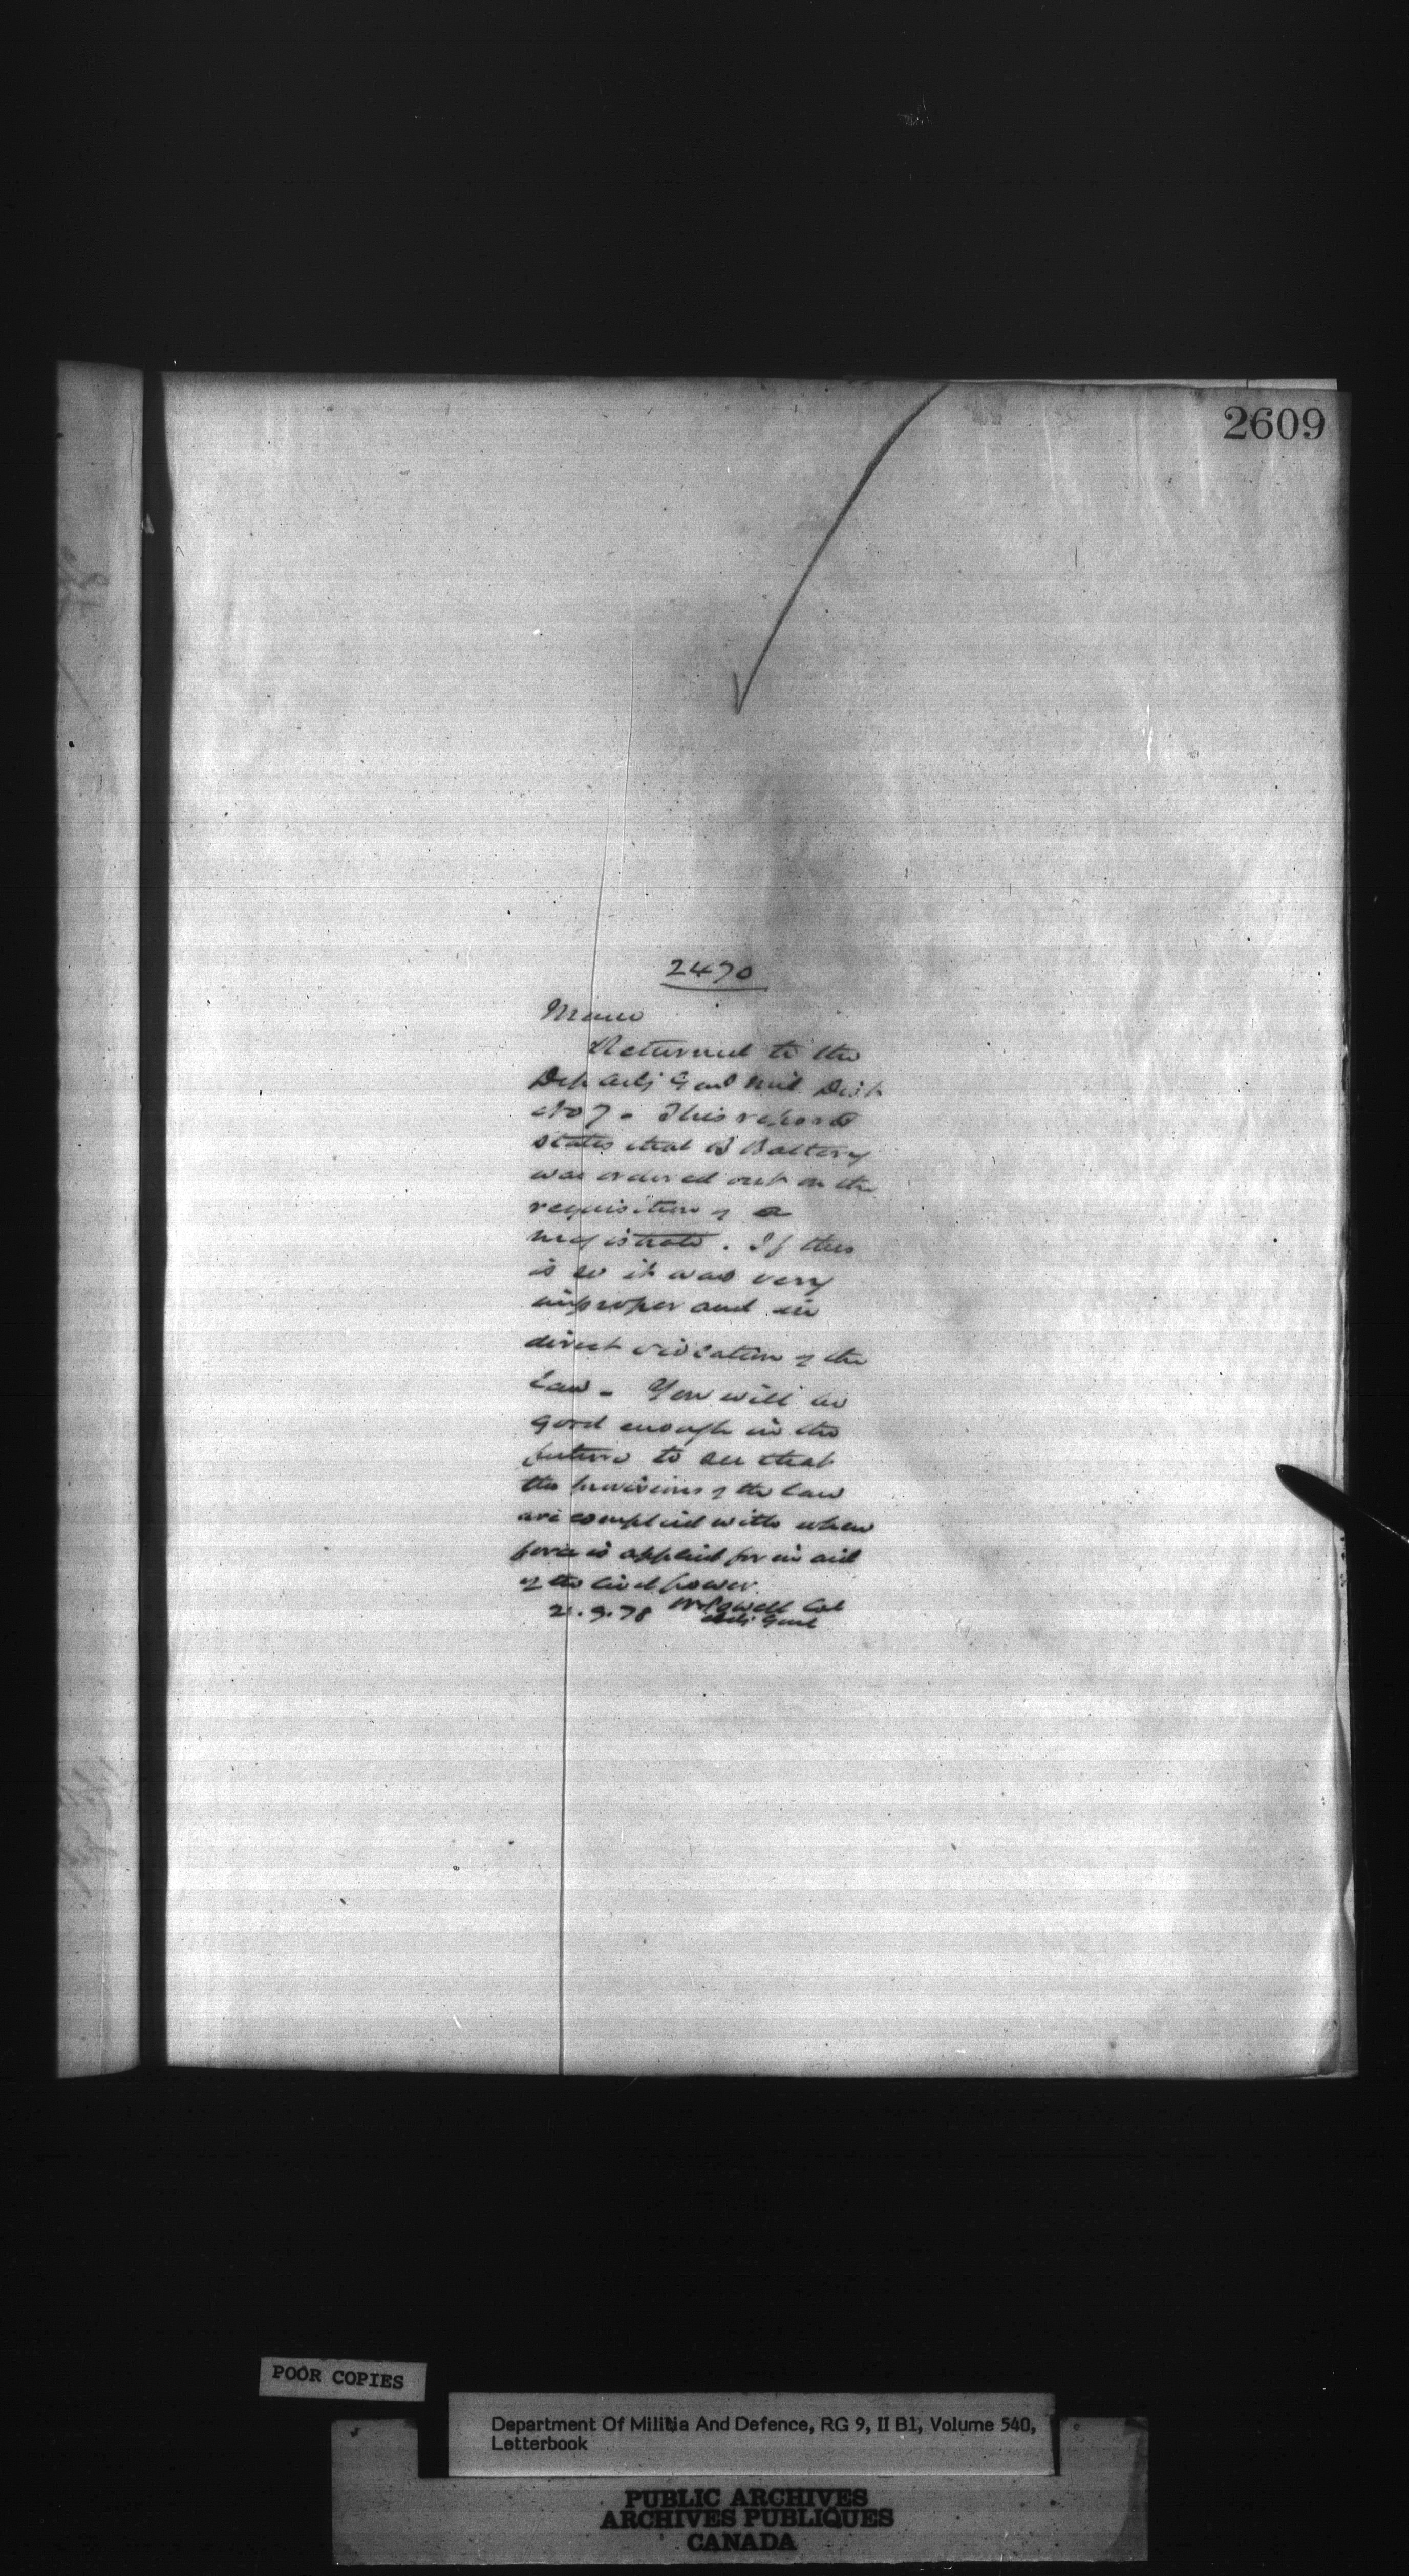 2609
2470
Memo
Returned to the
Dep Adj Genl Mil Dist
No 7 - This report
states that B Battery
was ordered out on the
requisition of a
magistrate. If this
is so it was very
improper and in
direct violation of the
law - You will be
good enough in the
future to see that
the provisions of the law
are complied with when
force is applied for in aid
of the civil power.
21.9.78 W Powell Col
Adj Genl
POOR COPIES
Department Of Militia And Defence, RG 9, II B1, Volume 540,
Letterbook
PUBLIC ARCHIVES
ARCHIVES PUBLIQUES
CANADA